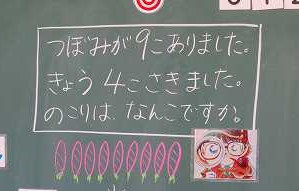 つぼみが9こありました。
きょう4こさきました。
のこりは、なんこですか。